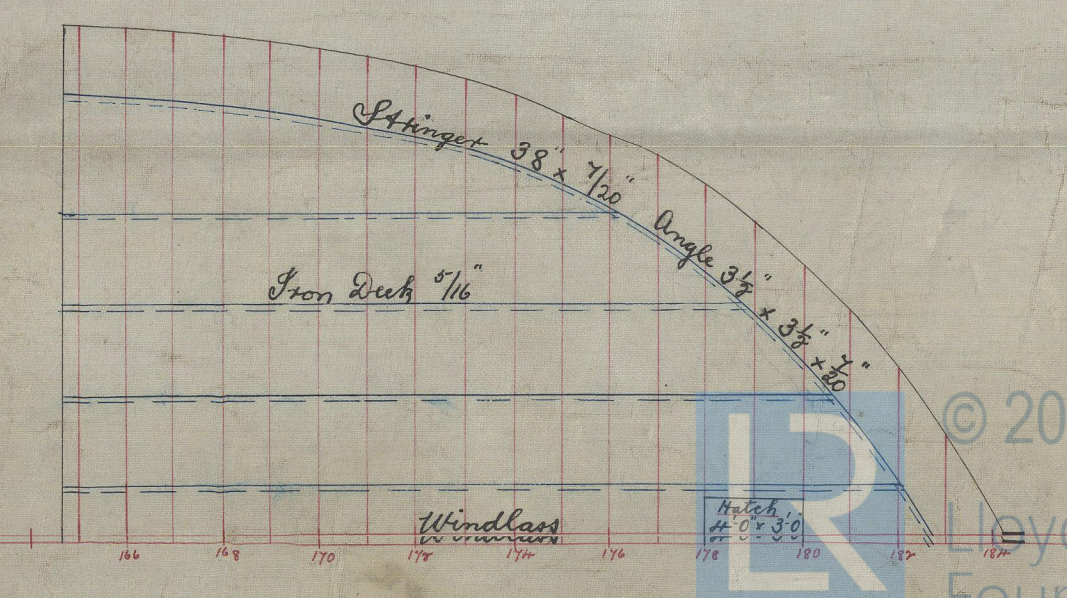 Stringer 38" x 7/20" Angle 3½" x 3½" x 7/20"
Iron Deck 5/16"
Windlass
Hatch
4'0" x 3'0"
166 168 170 172 174 176 178 180 182 184
LR
© 20
Lloyd
Foun